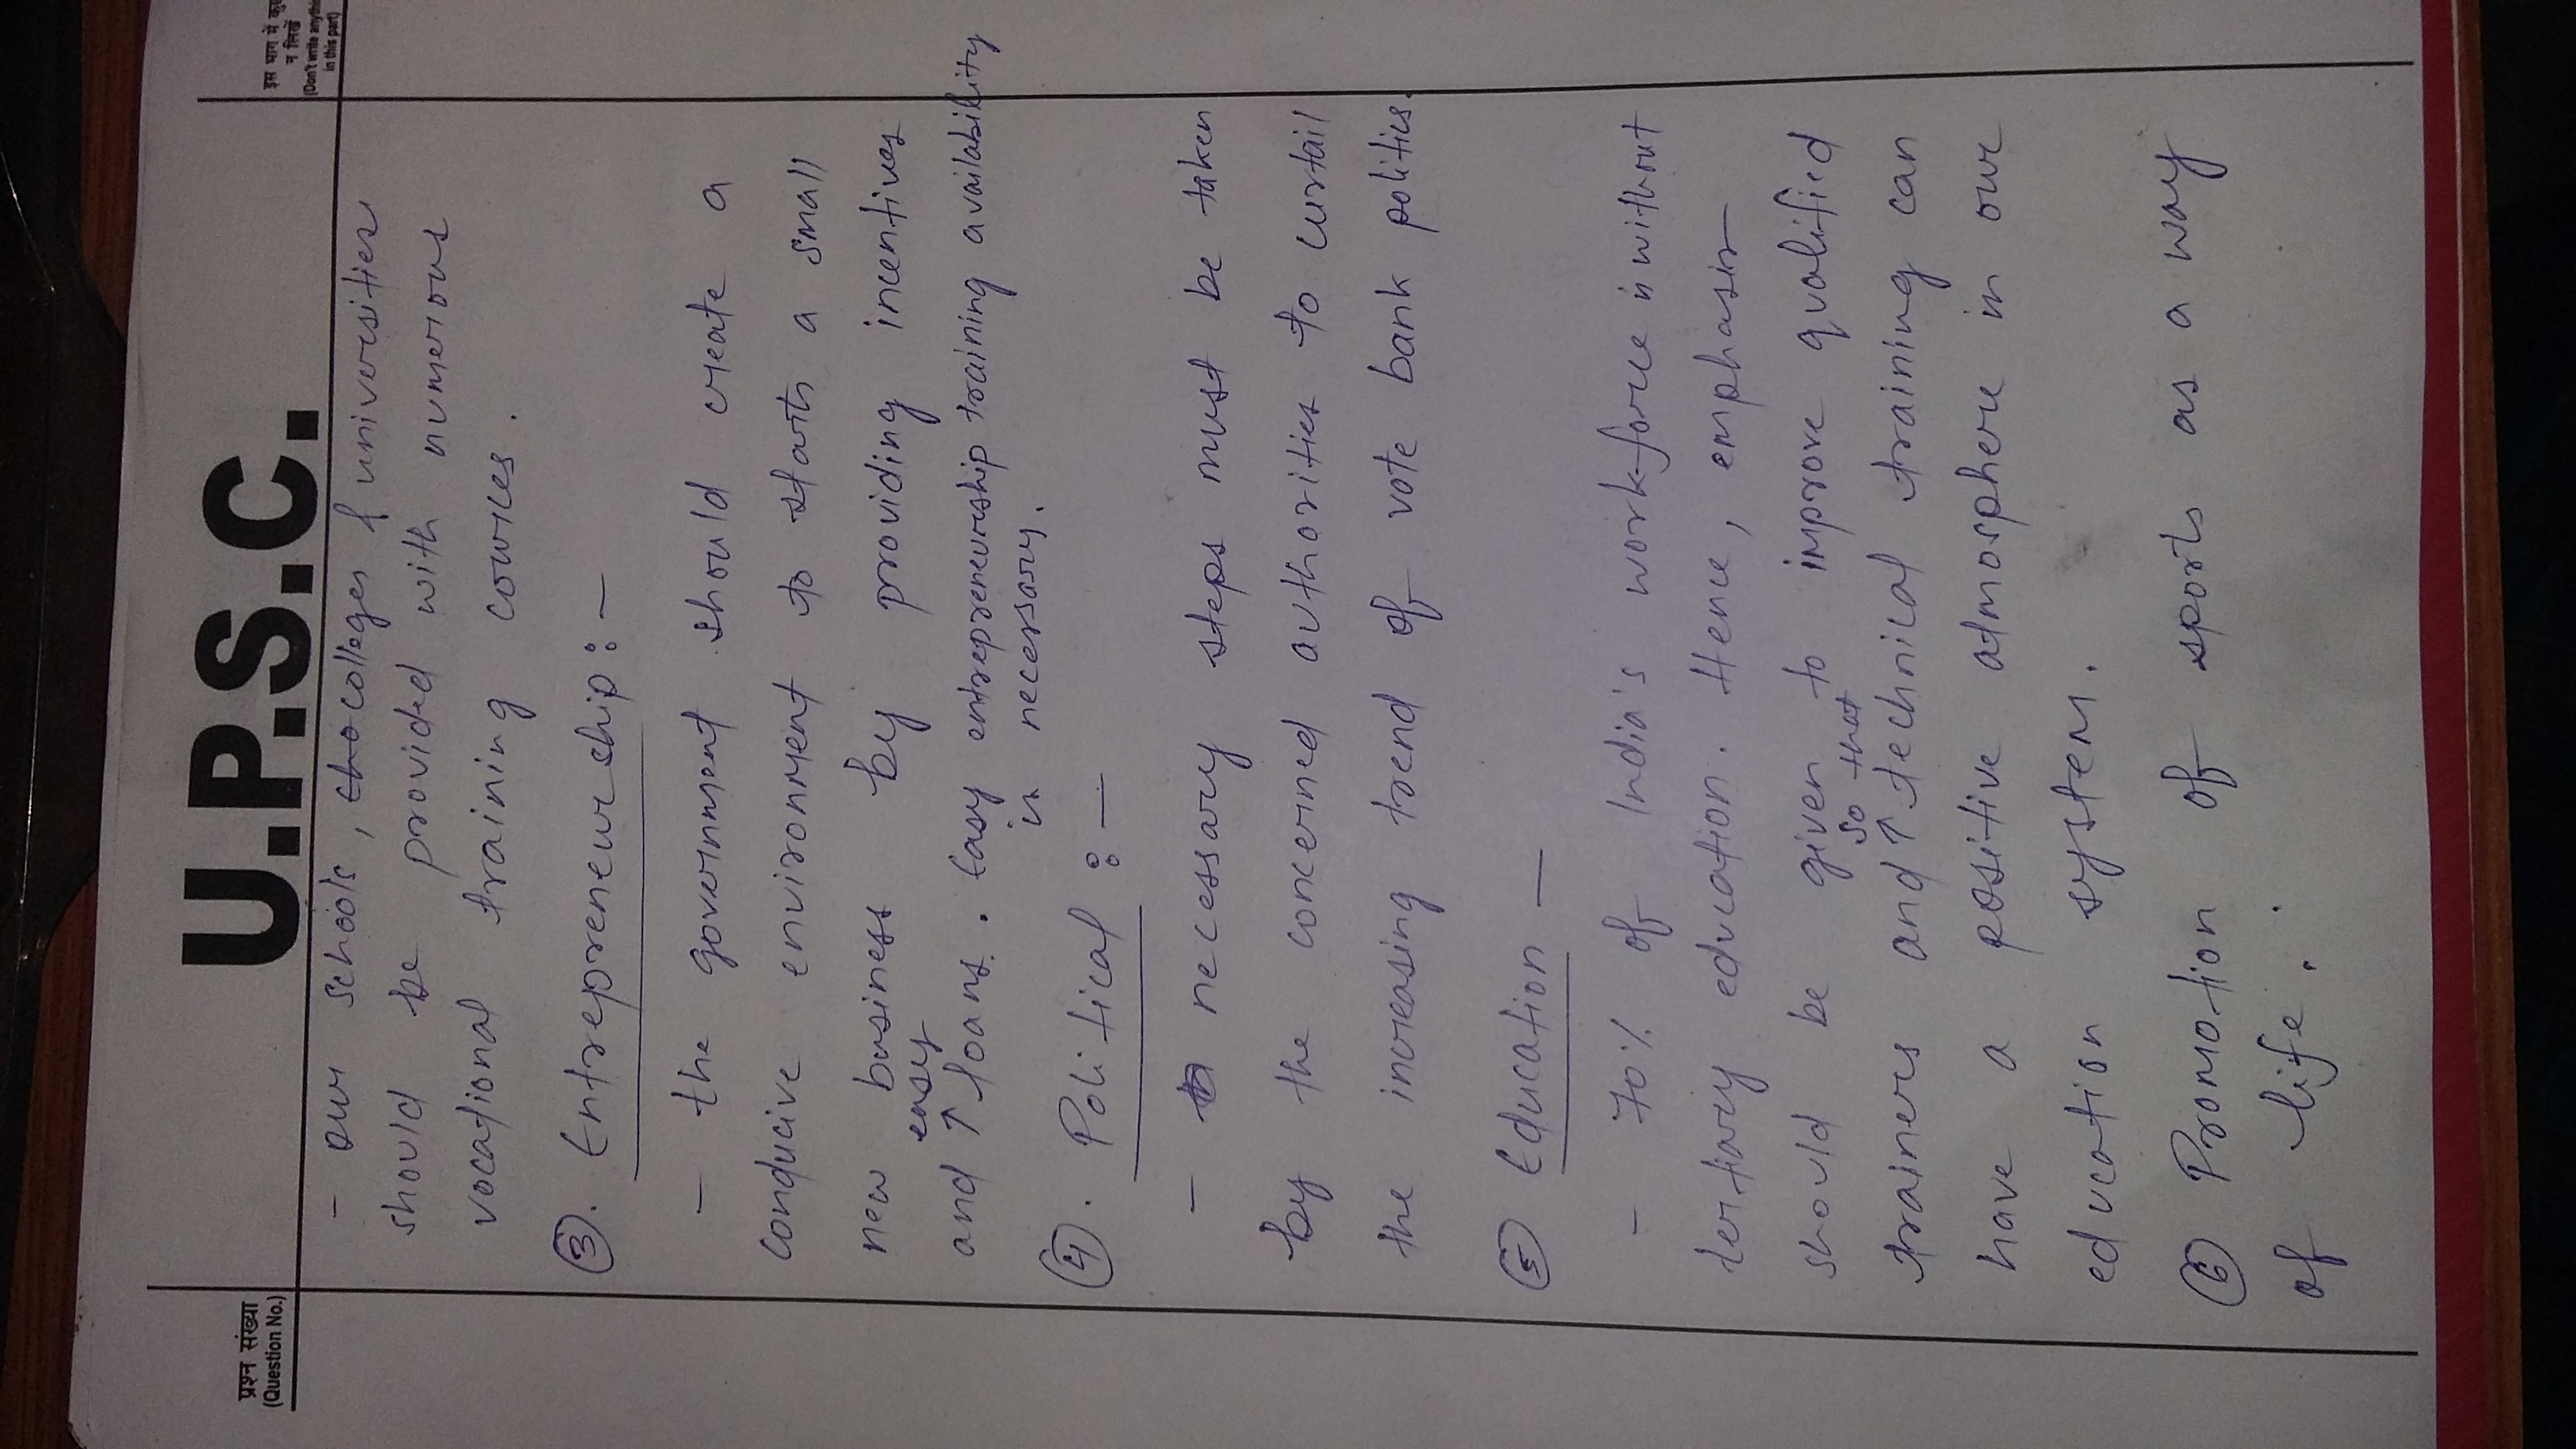 U.P.S.C.
प्रश्न संख्या
(Question No.)
इस भाग में कुछ
न लिखें
(Don't write anything
in this part)
- our schools, colleges & universities
should be provided with numerous
vocational training cources.
③. Entrepreneurship:-
- the government should create a
conducive environment to start a small
new business by providing incentives
easy
and ↑ loans. Easy entrepreneurship training availability
is necessary.
④. Political:-
- necessary steps must be taken
by the concerned authorities to curtail
the increasing trend of vote bank politics.
⑤ Education -
- 70% of India's work-force is without
tertiary education. Hence, emphasis
should be given to improve qualified
so that
trainers and ↑ technical training can
have a positive admosphere in our
education system.
⑥ Promotion of sports as a way
of life.